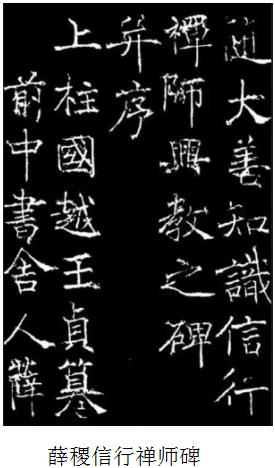 隨大善知識信行
禪師興教之碑
并序
上柱國越王貞篡
前中書舍人薛
薛稷信行禅师碑